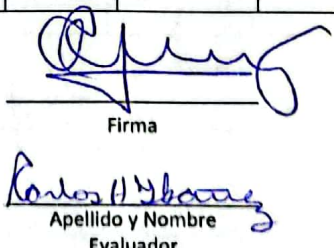 Firma
Carlos H Ybarra
Apellido y Nombre
Evaluador